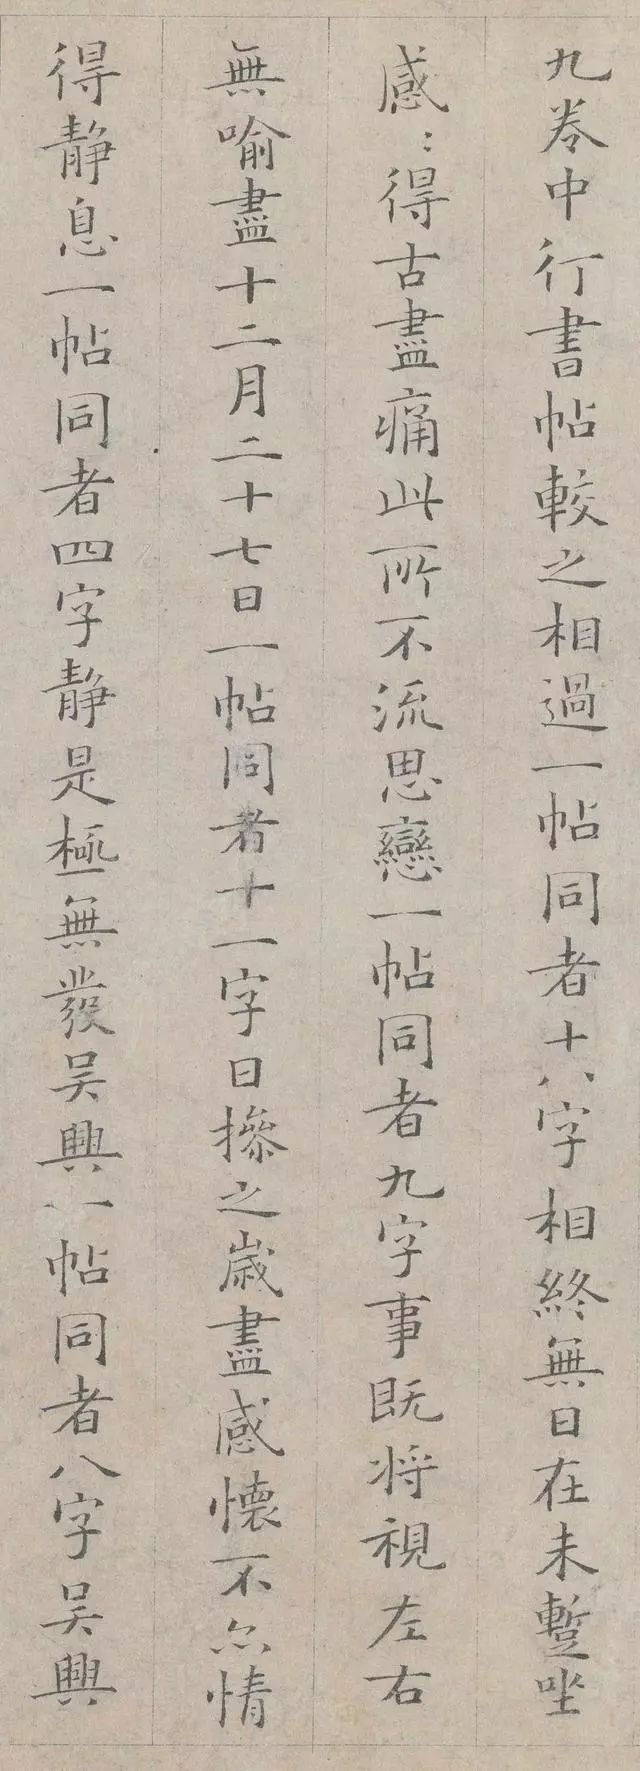 九卷中行書帖較之相過一帖同者十八字相終無日在未蹔唑
感〻得古盡痛此所不流思戀一帖同者九字事既将視左右
無喻盡十二月二十七日一帖同者十一字日摻之歳盡感懐不尓情
得静息一帖同者四字静是極無發吴興一帖同者八字吴興